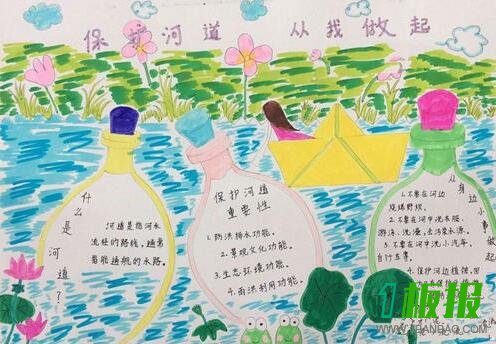 保护河道 从我做起
什么是河道？
河道是指河水
流经的路线，通常
指能通航的水路。
保护河道
重要性
1.防洪排水功能。
2.景观文化功能。
3.生态环境功能。
4.雨洪利用功能。
从身边小事做起
1.不要在河边
烧煤野炊。
2.不要在河中洗衣服、
游泳、洗澡、
3.不要在河中洗小汽车、
自行车等。
4.保护河边植被，
板报
WWW.1BANBAO.COM